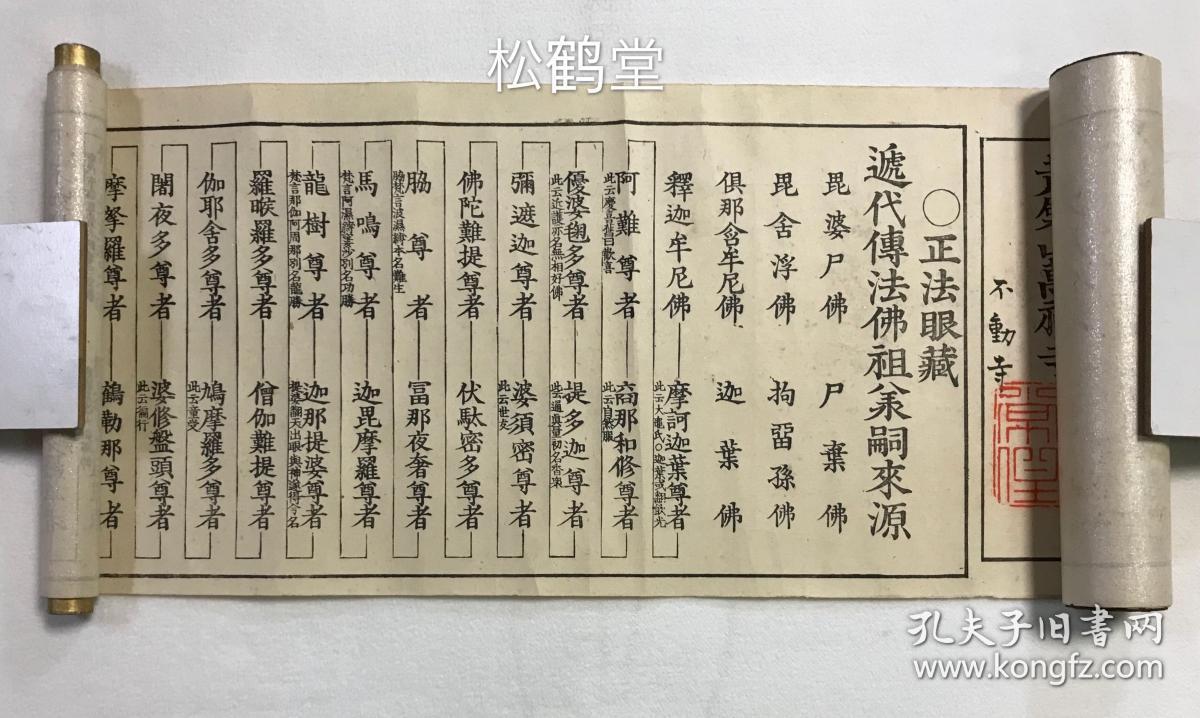 松鹤堂
不動寺
○正法眼藏
遞代傳法佛祖㕘嗣來源
毘婆尸佛 尸棄佛
毘舍浮佛 拘留孫佛
俱那含牟尼佛 迦葉佛
釋迦牟尼佛 摩訶迦葉尊者
此云大龜氏○迦葉或翻飲光
阿難尊者 商那和修尊者
此云慶喜舊曰歡喜 此云自然服
優婆毱多尊者 提多迦尊者
此云近護亦名無相好佛 此云通眞量初名香衆
彌遮迦尊者 婆須密尊者
此云世友
佛陀難提尊者 伏馱密多尊者
脇尊者 冨那夜奢尊者
脇梵言波濕縛本名難生
馬鳴尊者 迦毘摩羅尊者
梵言阿濕縛婁沙別名功勝
龍樹尊者 迦那提婆尊者
梵言那伽阿周那別名龍勝
羅睺羅多尊者 僧伽難提尊者
伽耶舍多尊者 鳩摩羅多尊者
此云童受
闍夜多尊者 婆修盤頭尊者
此云徧行
摩拏羅尊者 鶴勒那尊者
孔夫子旧書网
www.kongfz.com